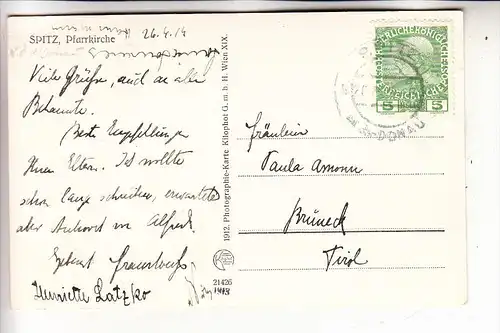 SPITZ, Pfarrkirche
26.4.14
Viele Grüße, auch an alle
Bekannte.
Beste Empfehlungen
Ihren Eltern. Ich wollte
schon lange schreiben, erwartete
aber Antwort von Alfred.
Henriette Latzko
1912. Photographie-Karte Kilophot G. m. b. H. Wien XIX.
21426
5 5
AN DER DONAU
Fräulein
Paula Amonn
Bruneck
Tirol